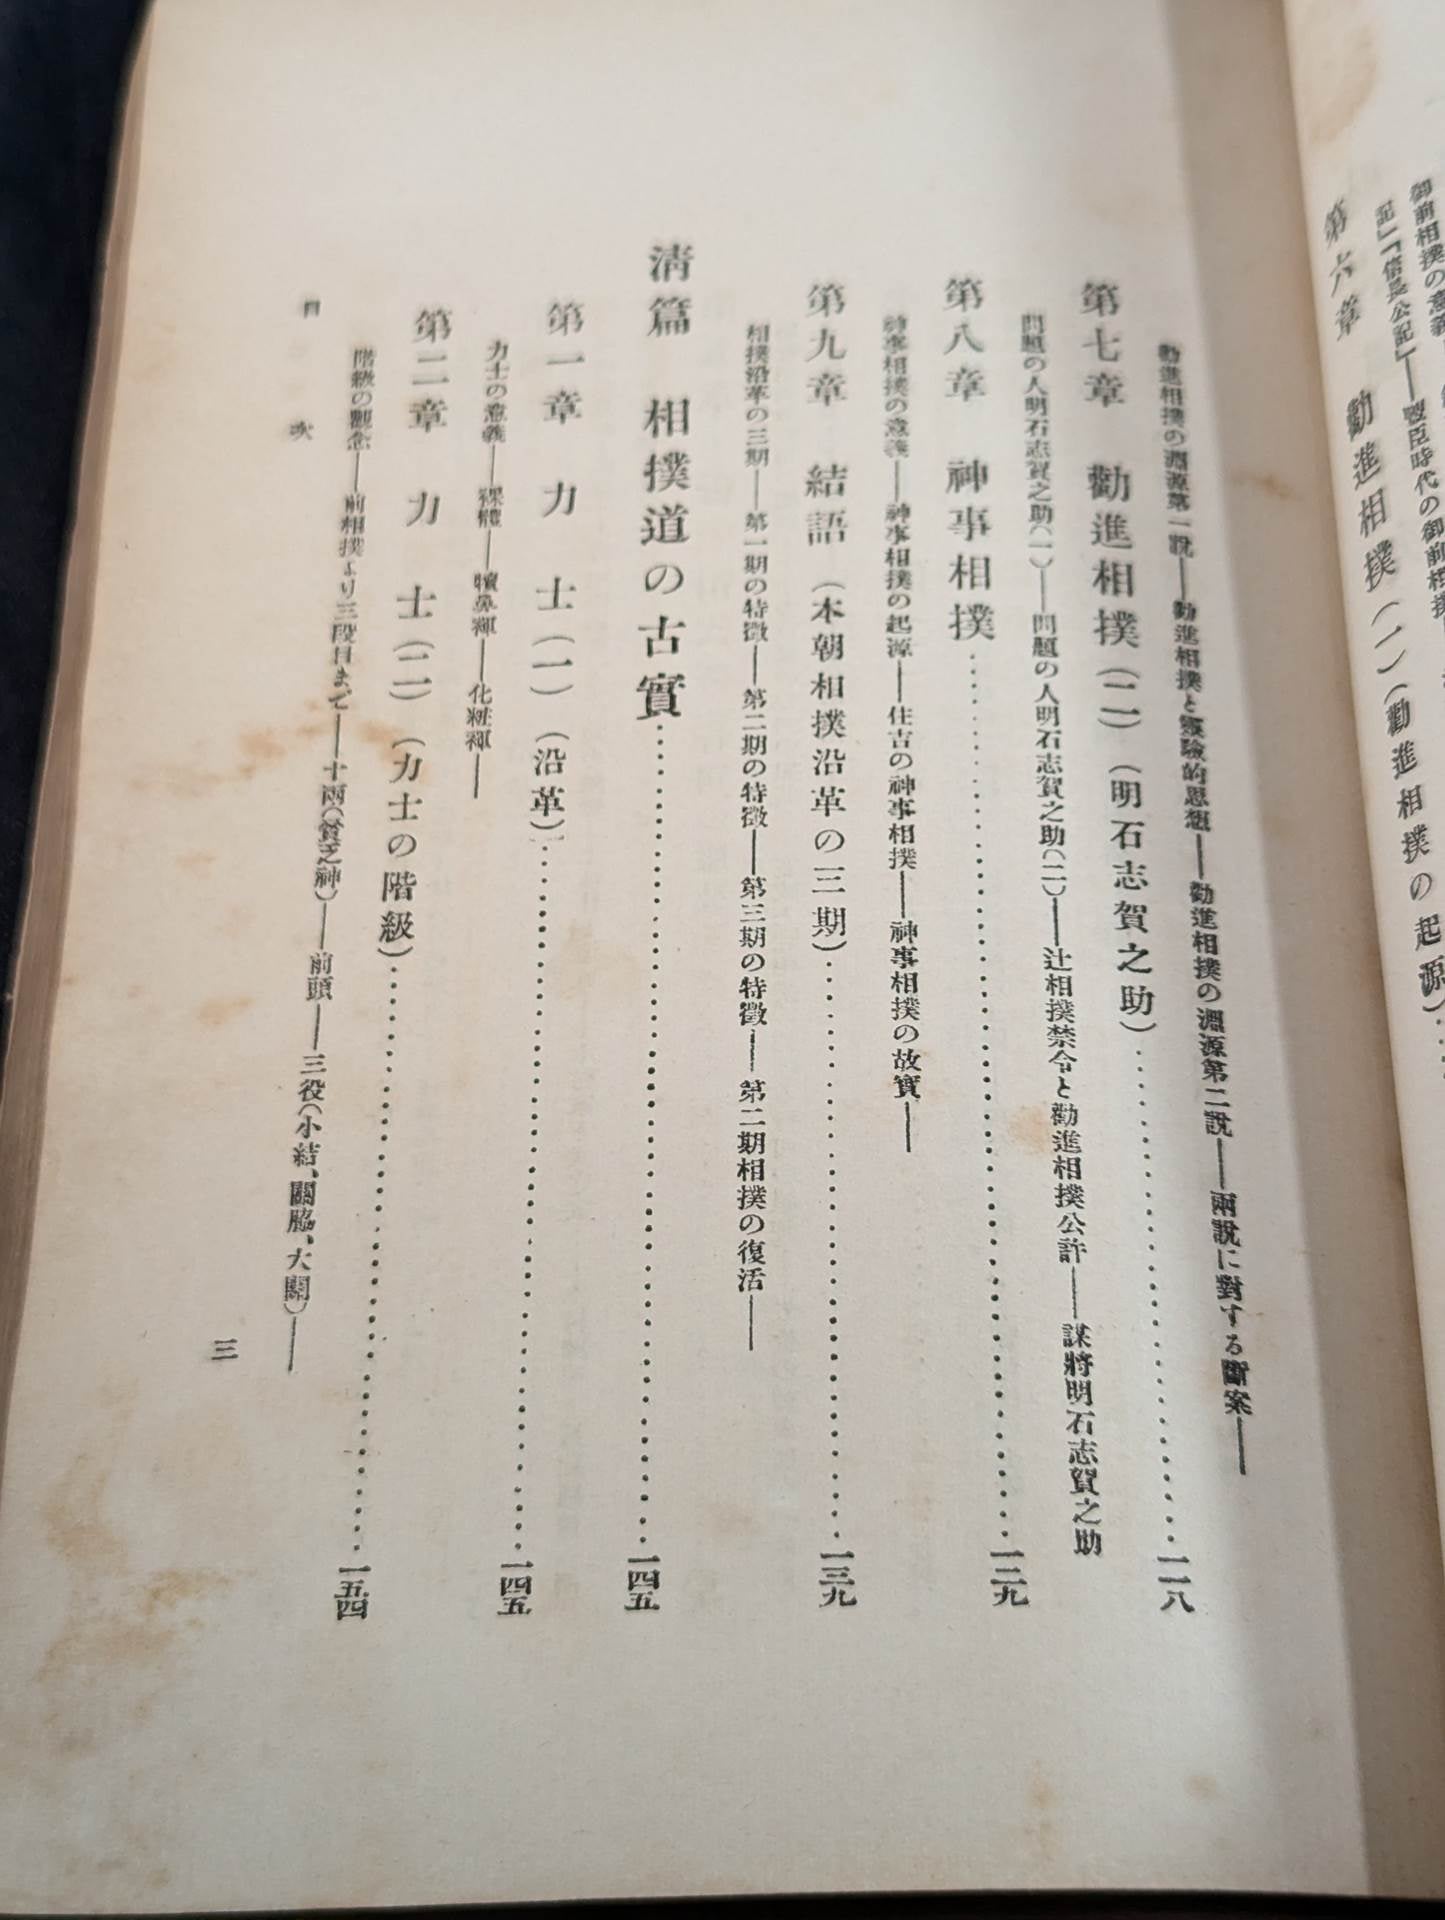 御前相撲の意義
記」「信長公記」——豐臣時代の御前相撲
第六章　勸進相撲（一）（勸進相撲の起源）……
勸進相撲の淵源第一說——勸進相撲と靈驗的思想——勸進相撲の淵源第二說——兩說に對する斷案——
第七章　勸進相撲（二）（明石志賀之助）……一一八
問題の人明石志賀之助（一）——問題の人明石志賀之助（二）——辻相撲禁令と勸進相撲公許——謀將明石志賀之助
第八章　神事相撲……一二九
神事相撲の意義——神事相撲の起源——住吉の神事相撲——神事相撲の故實——
第九章　結語（本朝相撲沿革の三期）……一三九
相撲沿革の三期——第一期の特徵——第二期の特徵——第三期の特徵——第二期相撲の復活——
淸篇　相撲道の古實……一四五
第一章　力士（一）（沿革）……一四五
力士の意義——裸體——犢鼻褌——化粧褌——
第二章　力士（二）（力士の階級）……一五四
階級の觀念——前相撲より三段目まで——十兩（貧乏神）——前頭——三役（小結、關脇、大關）——
目次
三